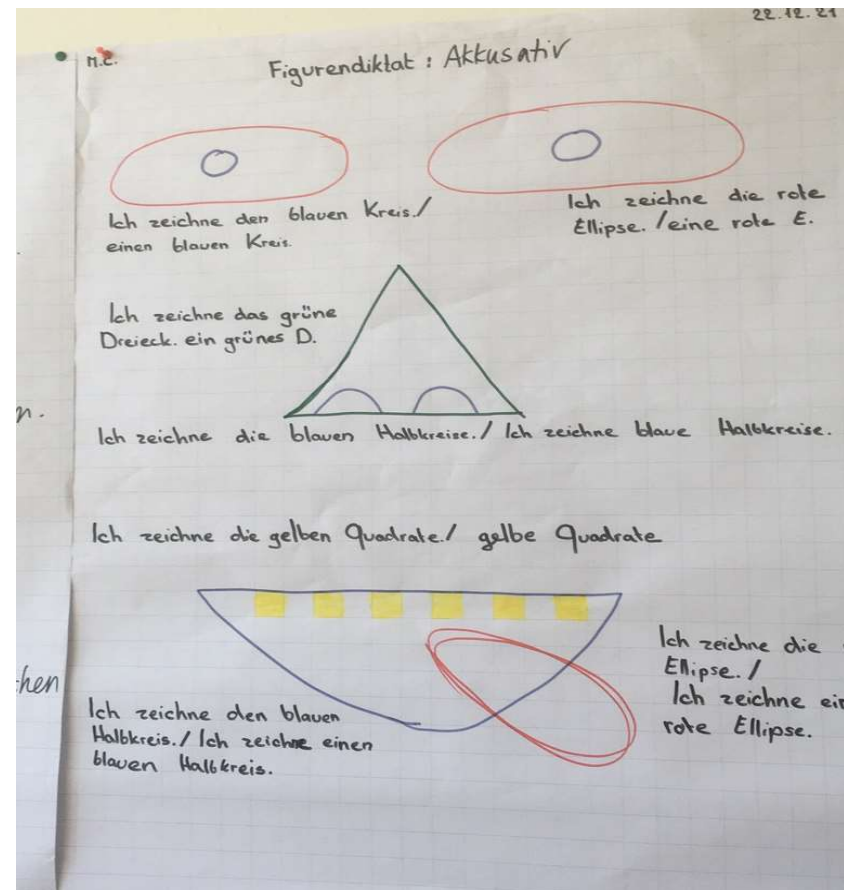 22.12.21
n.c.
Figurendiktat : Akkusativ
Ich zeichne den blauen Kreis./
einen blauen Kreis.
Ich zeichne die rote
Ellipse. /eine rote E.
Ich zeichne das grüne
Dreieck. ein grünes D.
n.
Ich zeichne die blauen Halbkreise./ Ich zeichne blaue Halbkreise.
Ich zeichne die gelben Quadrate./ gelbe Quadrate
Ich zeichne die
Ellipse. /
Ich zeichne ein
rote Ellipse.
hen
Ich zeichne den blauen
Halbkreis./ Ich zeichne einen
blauen Halbkreis.